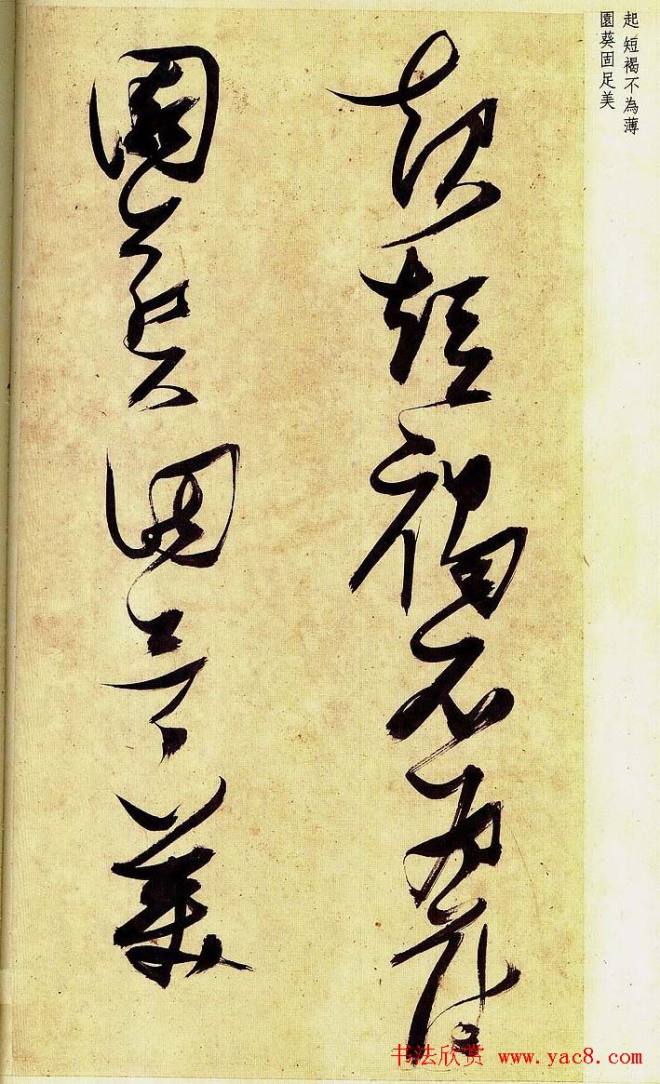 起短褐不為薄
園葵固足美
起 短褐不為薄
園葵固足美
书法欣赏 www.yac8.com